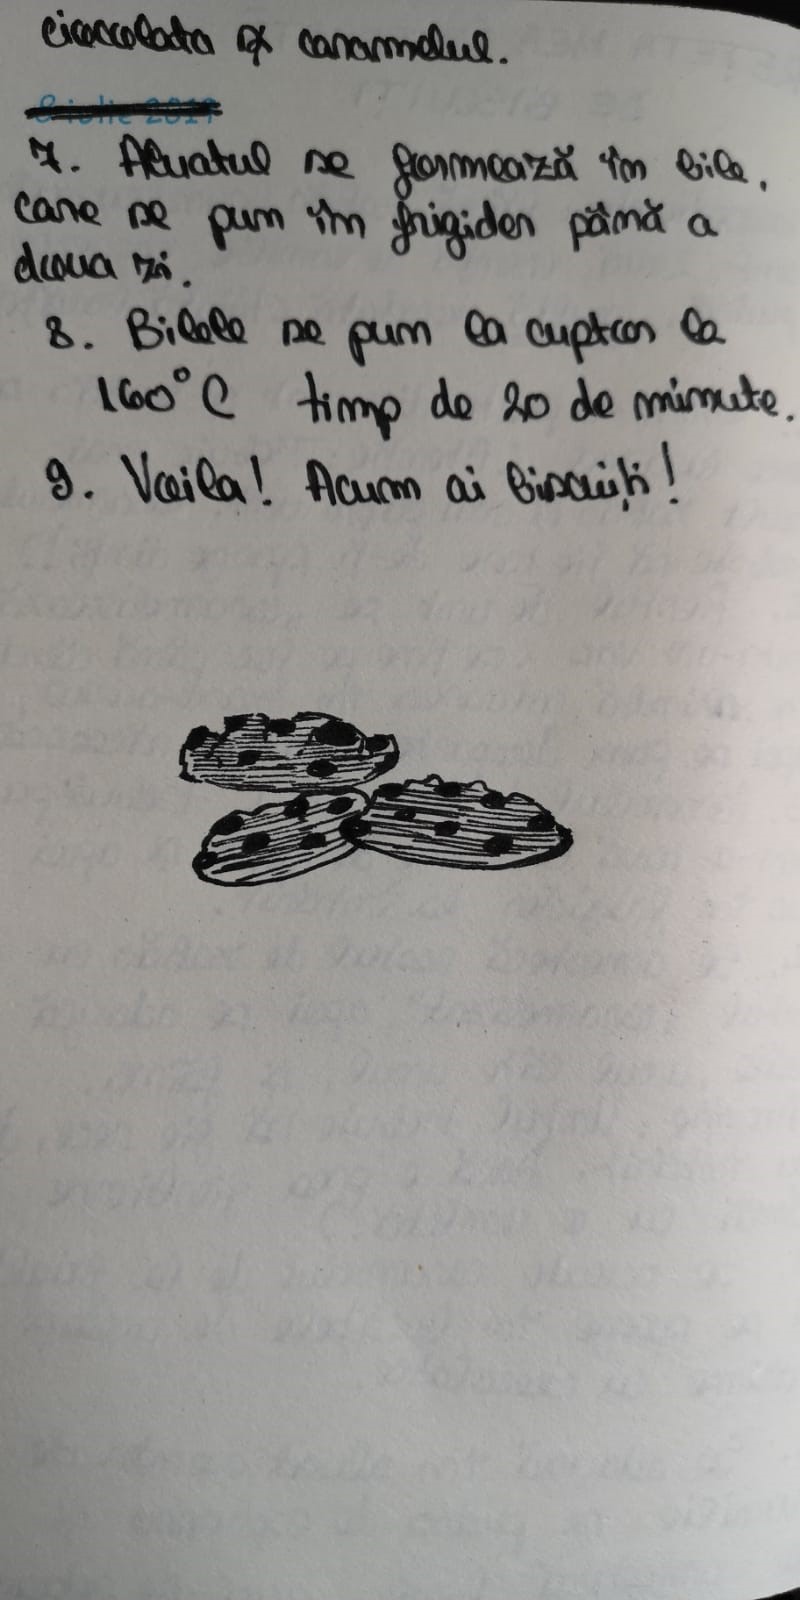 cioccolata și caramelul.
8 iulie 2019
7. Aluatul se formează în bile,
care se pun în frigider până a
doua zi.
8. Bilele se pun la cuptor la
160°C timp de 20 de minute.
9. Voila! Acum ai biscuiți!